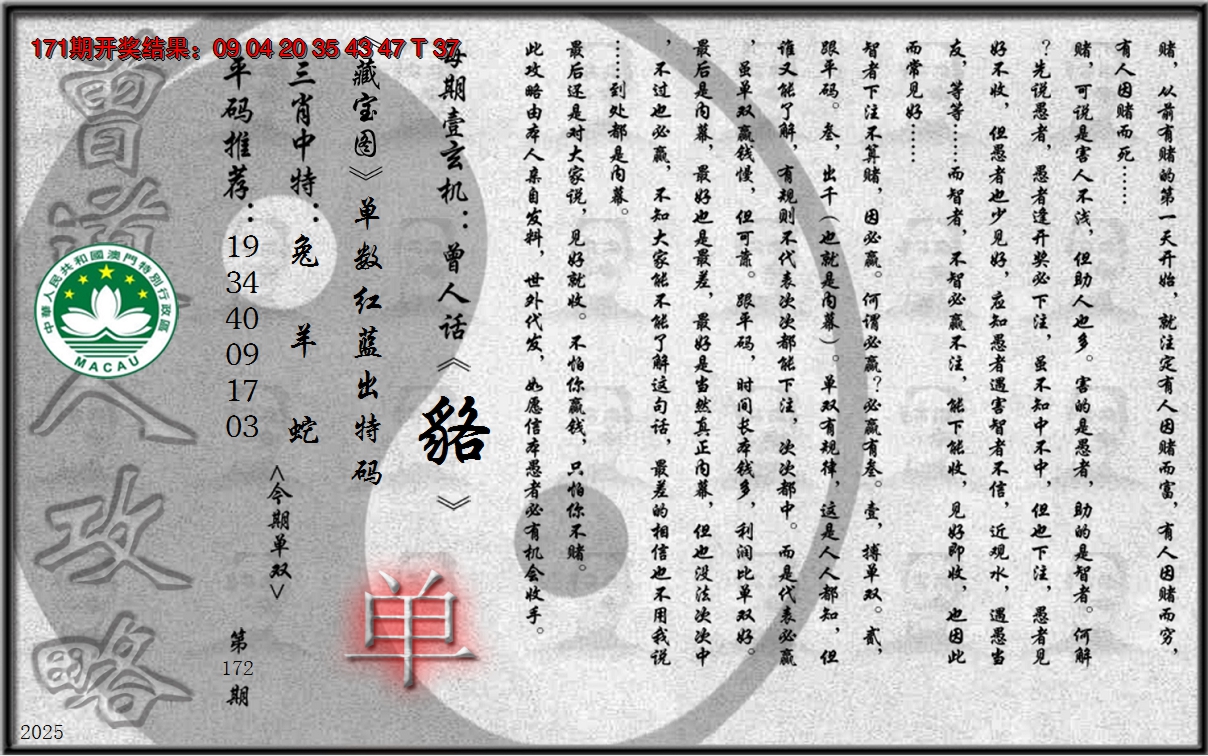 171期开奖结果：09 04 20 35 43 47 T 37
赌，从前有赌的第一天开始，就注定有人因赌而富，有人因赌而穷，
有人因赌而死……
赌，可说是害人不浅，但助人也多。害的是愚者，助的是智者。何解
？先说愚者，愚者逢开奖必下注，虽不知中不中，但也下注，愚者见
好不收，但愚者也少见好，应知愚者遇害智者不信，近观水，遇愚当
友，等等……而智者，不智必赢不注，能下能收，见好即收，也因此
而常见好……
智者下注不算赌，因必赢。何谓必赢？必赢有叁。壹，搏单双。贰，
跟平码。叁，出千（也就是内幕）。单双有规律，这是人人都知，但
谁又能了解，有规则不代表次次都能下注，次次都中。而是代表必赢
，虽单双赢钱慢，但可靠。跟平码，时间长本钱多，利润比单双好。
最后是内幕，最好也是最差，最好是当然真正内幕，但也没法次次中
，不过也必赢，不知大家能不能了解这句话，最差的相信也不用我说
……到处都是内幕。
最后还是对大家说，见好就收。不怕你赢钱，只怕你不赌。
此攻略由本人亲自发料，世外代发，如愿信本愚者必有机会收手。
每期壹玄机：曾人话《貉》
《藏宝图》单数红蓝出特码
单
三肖中特：兔 羊 蛇
<今期单双>
平码推荐：19 34 40 09 17 03
第172期
曾道人攻略
中華人民共和國澳門特別行政區
MACAU
2025